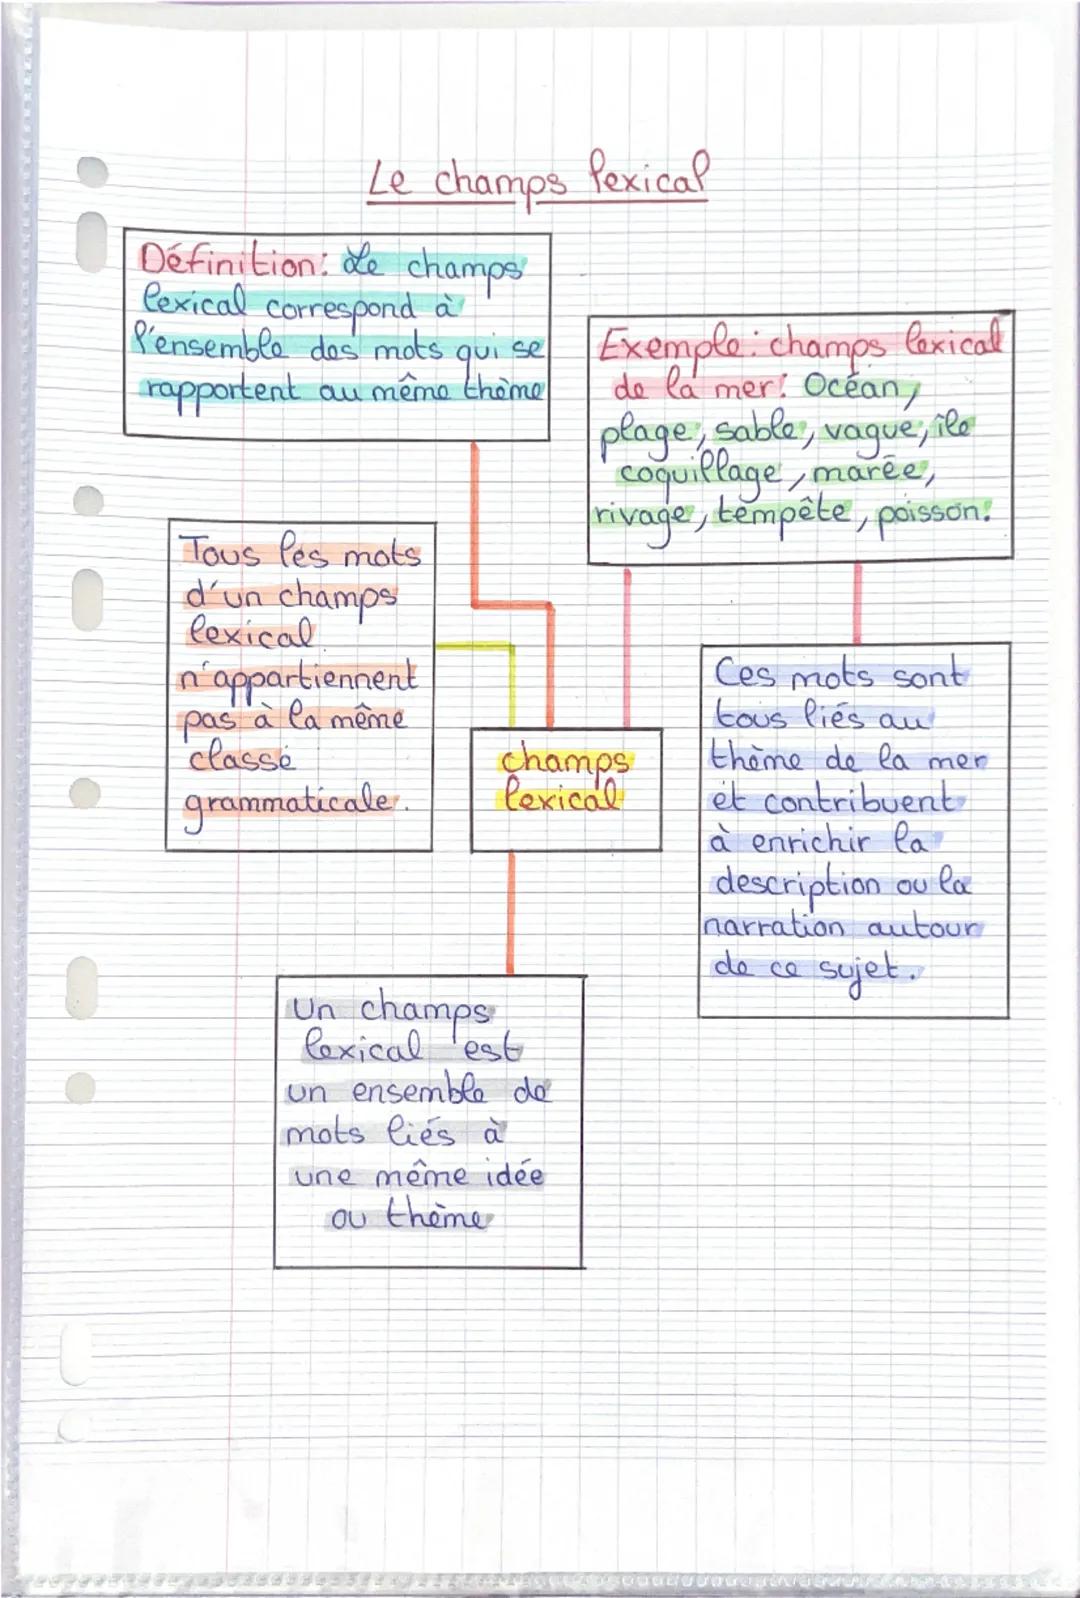 Le champs lexical
Définition: Le champs
lexical correspond à
l'ensemble des mots qui se
rapportent au même thème
Exemple: champs lexical
de la mer: Océan,
plage, sable, vague, île
coquillage, marée,
rivage, tempête, poisson.
Tous les mots
d'un champs
lexical
n'appartiennent
pas à la même
classe
grammaticale.
champs
lexical
Ces mots sont
tous liés au
thème de la mer
et contribuent
à enrichir la
description ou la
narration autour
de ce sujet.
Un champs
lexical est
un ensemble de
mots liés à
une même idée
ou thème